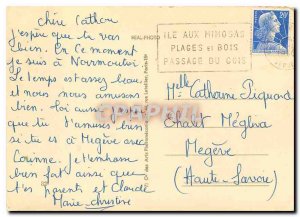 chère Cathou
j'espère que tu vas
bien. En ce moment
je suis à Noirmoutier.
Le temps est assez beau,
et nous nous amusons
bien. Toi aussi j'espère
que tu t'amuses bien
si tu es à Megève avec
Corinne. Je t'embrasse
bien fort ainsi que
tes parents et Claude
Marie-christine
REAL-PHOTO
ILE AUX MIMOSAS
PLAGES et BOIS
PASSAGE DU GOIS
20F
Melle Catherine Piquard
Chalet Mégliva
Megève
(Haute-Savoie)